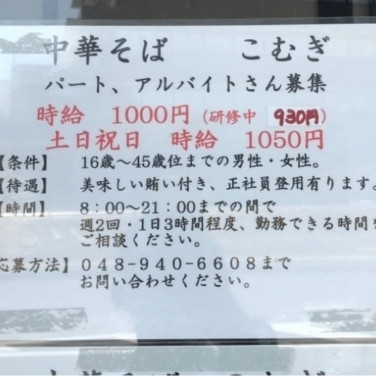 中華そば　こむぎ
パート、アルバイトさん募集
時給　1000円（研修中　930円）
土日祝日　時給　1050円
【条件】　16歳～45歳位までの男性・女性。
【待遇】　美味しい賄い付き、正社員登用有ります。
【時間】　8：00～21：00までの間で
週2回・1日3時間程度、勤務できる時間を
ご相談ください。
応募方法】０４８-９４０-６６０８まで
お問い合わせください。